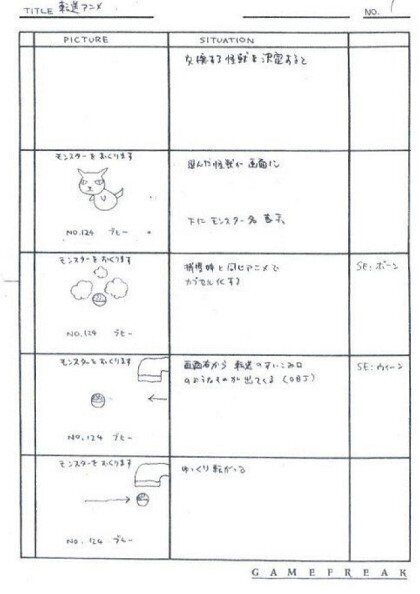 TITLE 転送アニメ
NO. 1
PICTURE
SITUATION
交換する怪獣を決定すると
モンスターをおくります
NO.124 ブヒー
選んだ怪獣が画面に
下にモンスター名 表示。
モンスターをおくります
NO.124 ブヒー
捕獲時と同じアニメで
カプセル化する
SE:ボーン
モンスターをおくります
NO.124 ブヒー
画面右から 転送のすいこみ口
のようなものが出てくる (OBJ)
SE:ウィーン
モンスターをおくります
NO.124 ブヒー
ゆっくり転がる
GAMEFREAK